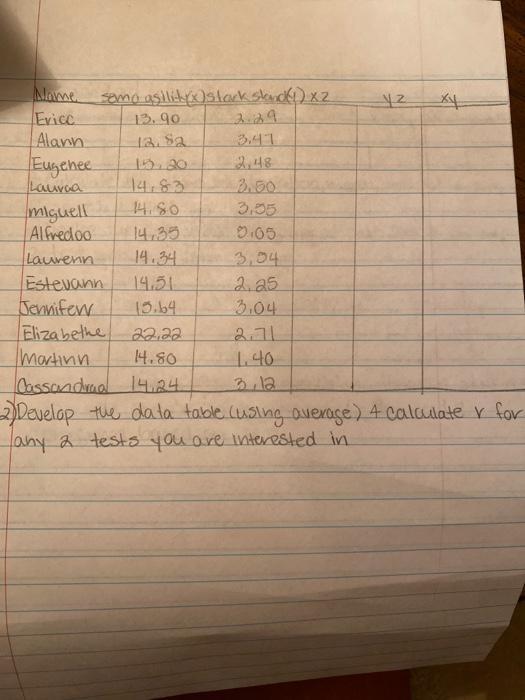 Name semo agility(x) stork stand(y) x2 y2 xy
Ericc 13.90 2.29
Alann 12.82 3.47
Eugenee 15.20 2.48
Lauraa 14.83 3.50
miguell 14.80 3.55
Alfredoo 14.35 5.05
Laurenn 14.34 3.54
Estevann 14.51 2.25
Jenniferr 15.64 3.04
Elizabethe 22.22 2.71
Martinn 14.80 1.40
Cassandraa 14.24 3.12
2) Develop the data table (using average) & calculate r for
any 2 tests you are interested in